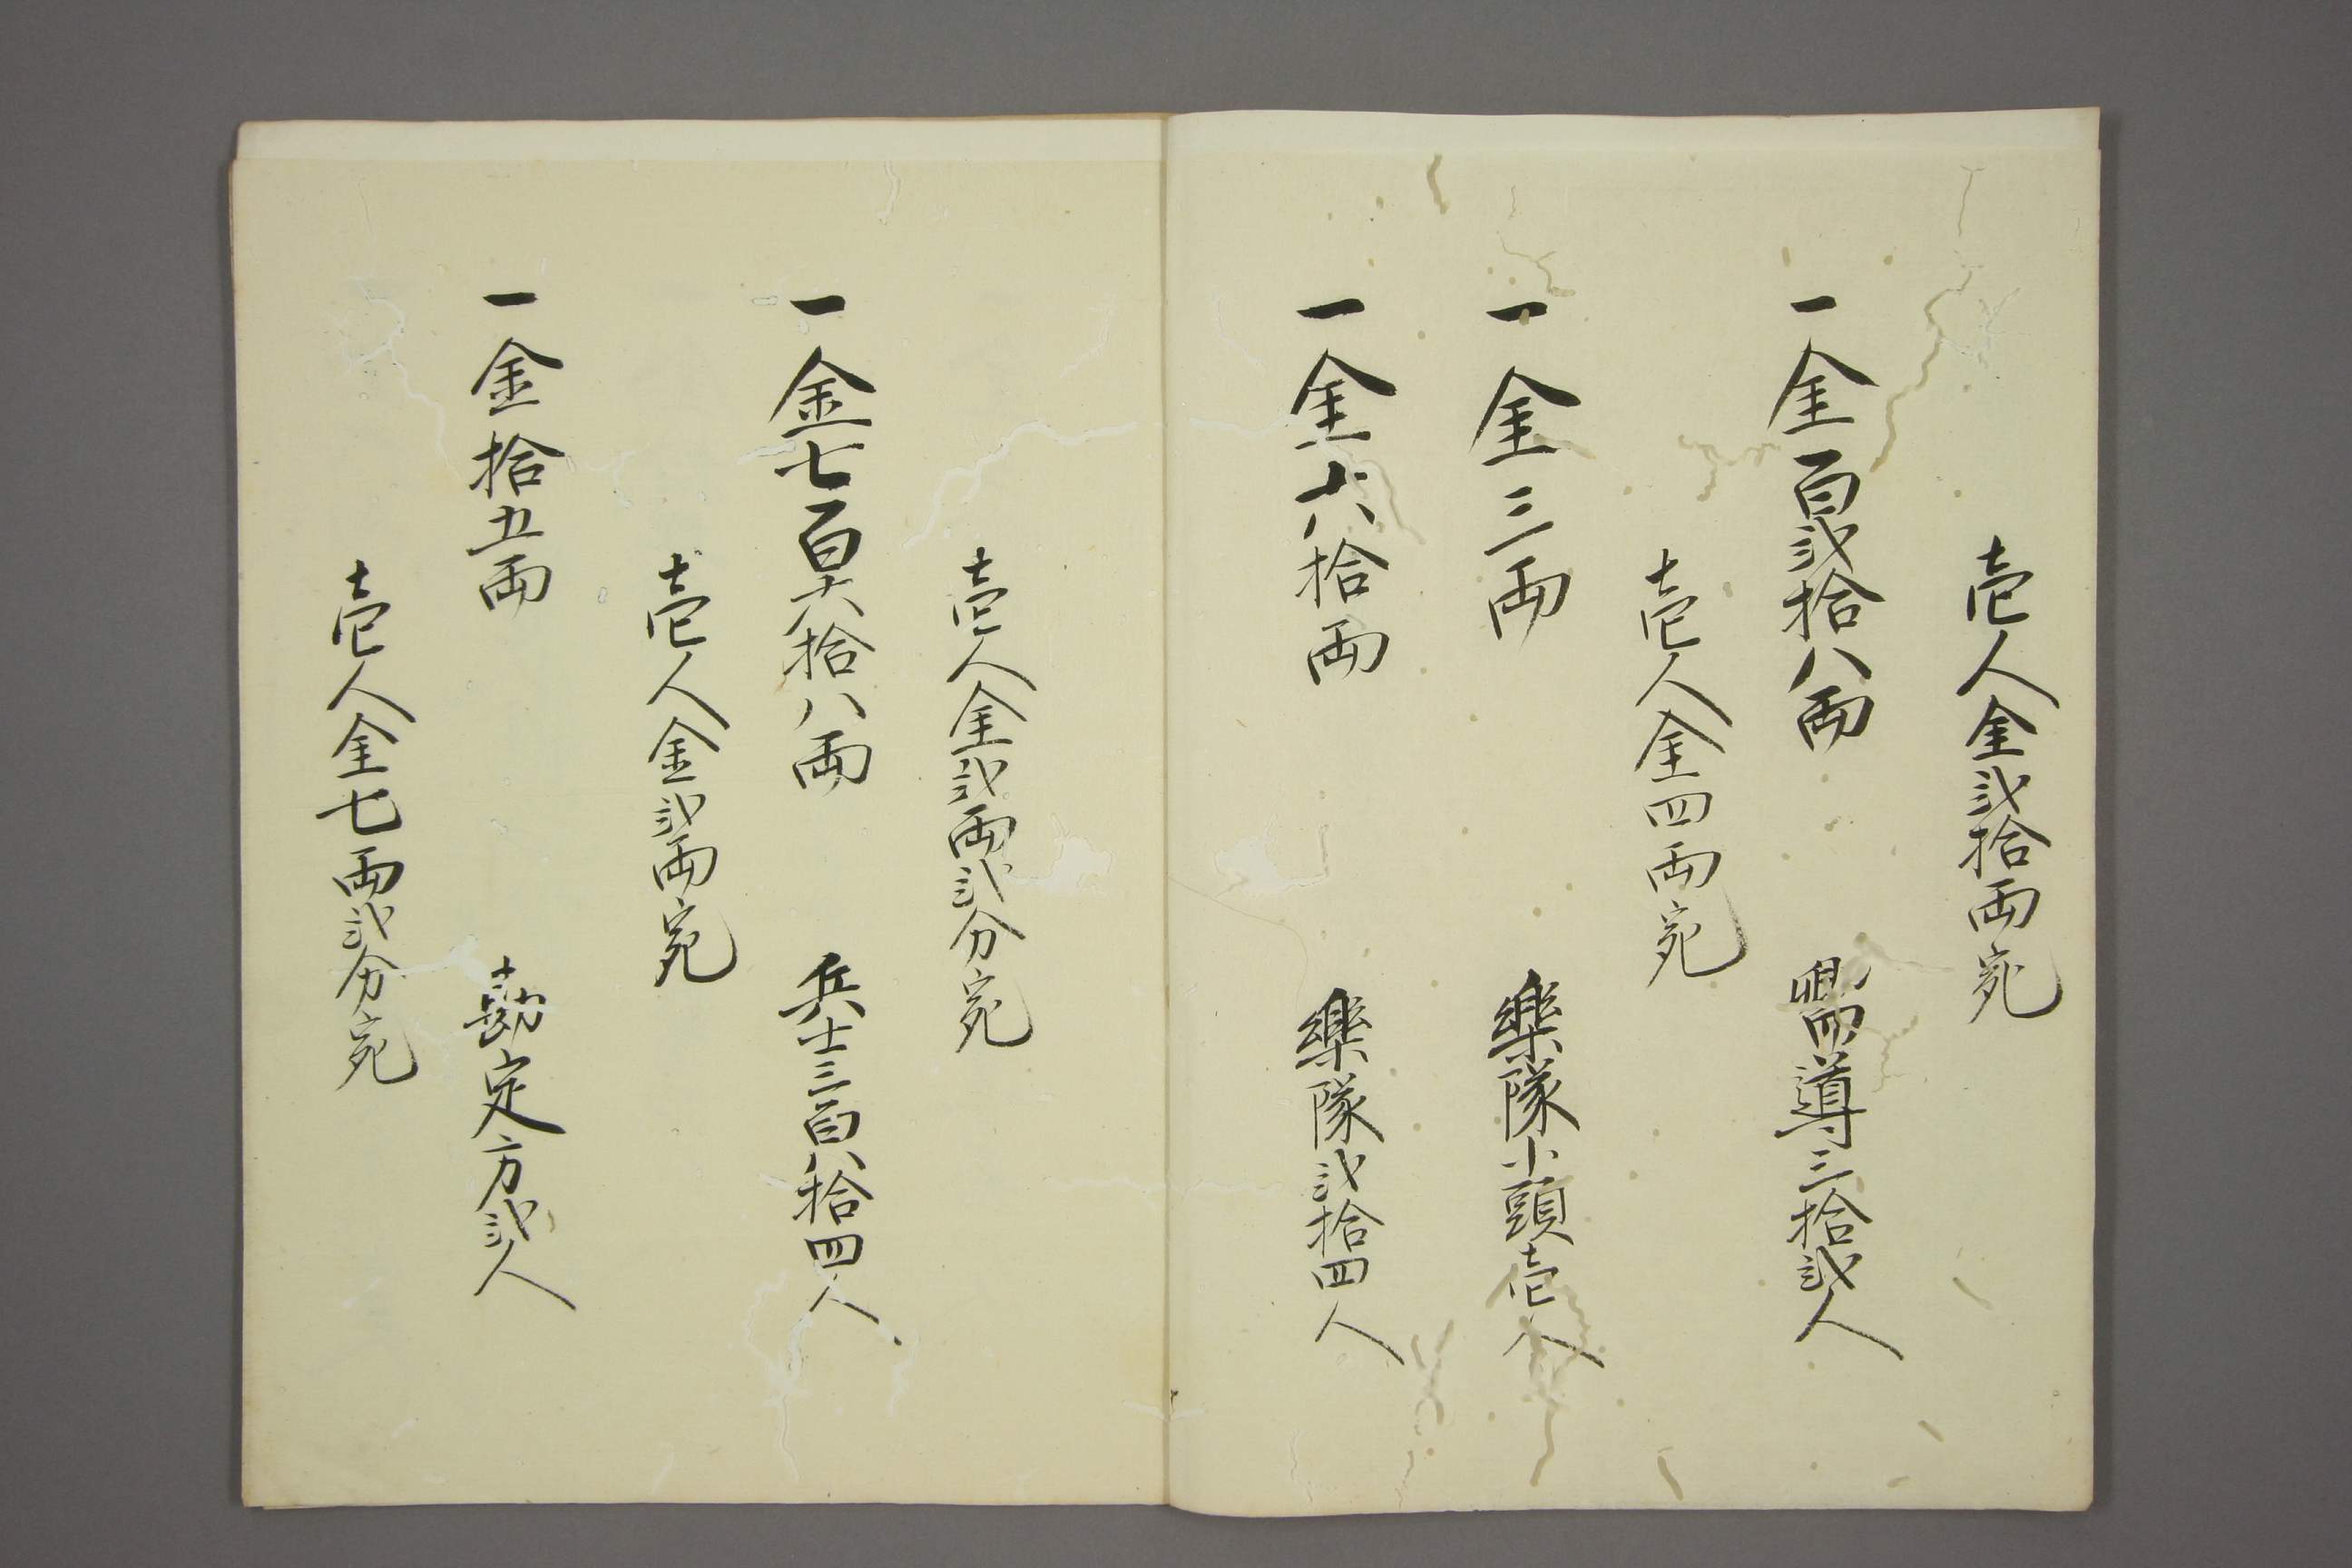 壱人金弐拾両宛
一金百弐拾八両 嚮導三拾弐人
壱人金四両宛
一金三両 樂隊小頭壱人
一金六拾両 樂隊弐拾四人
壱人金弐両弐分宛
一金七百六拾八両 兵士三百八拾四人
壱人金弐両宛
一金拾五両 勘定方弐人
壱人金七両弐分宛